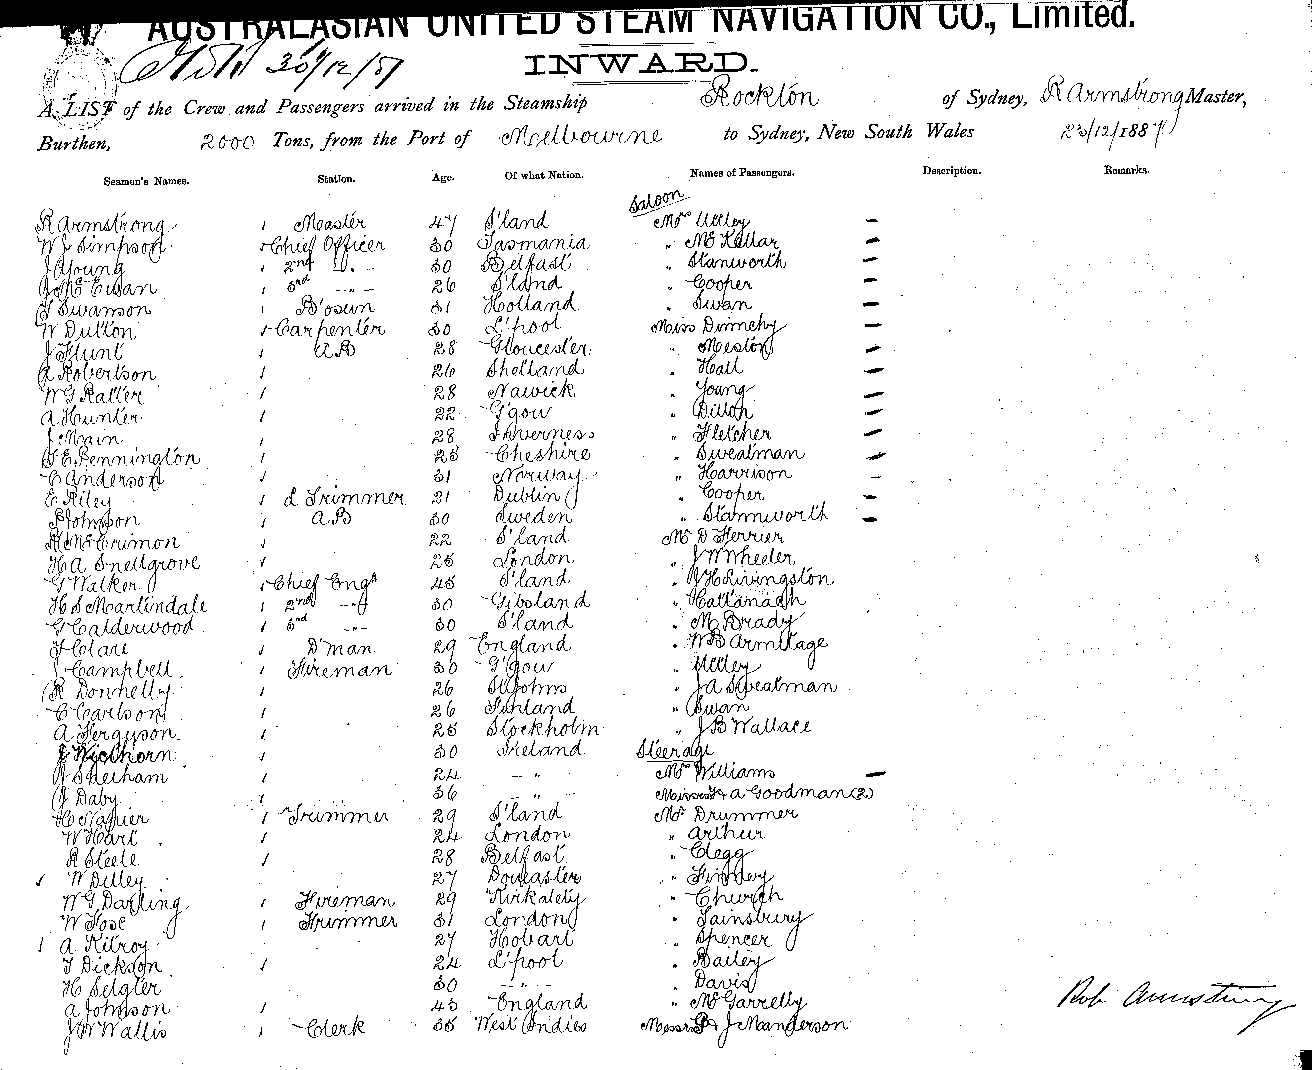 AUSTRALASIAN UNITED STEAM NAVIGATION CO., Limited.
INWARD.
A LIST of the Crew and Passengers arrived in the Steamship Rockton of Sydney, R Armstrong Master,
Burthen, 2000 Tons, from the Port of Melbourne to Sydney, New South Wales 23/12/1887
Seamen's Names. Station. Age. Of what Nation. Names of Passengers. Description. Remarks.
Saloon
R Armstrong 1 Master 47 S'land Mrs Utley –
W J Simpson 1 Chief Officer 30 Tasmania " McKellar –
J Young 1 2nd D. 30 Belfast " Stanworth –
J McEwan 1 3rd -"- 26 S'land " Cooper –
J Swanson 1 Bosun 31 Holland " Swan –
W Dutton 1 Carpenter 30 L'pool Miss –
J Flunt 1 AB 28 Gloucester " Meston –
A Robertson 1 26 Shetland " Hall
W G Ratter 1 28 " Young –
A Hunter 1 22 G'gow " Dillon –
J Main 1 28 Inverness " Fletcher –
Pennington 1 25 Cheshire " Sweatman –
C Anderson 1 31 Norway " Harrison –
E Riley 1 L Trimmer 21 Dublin " Cooper –
P Johnson 1 AB 30 Sweden " Stannworth –
McCrimon 1 22 S'land Mr D Ferrier
H A Snellgrove 1 25 London " J W Wheeler
G Walker 1 Chief Engr 45 S'land " Livingston
H S Martindale 1 2nd -"- 30 Gibsland " Hattanagh
G Calderwood 1 3rd -"- 30 S'land " M Brady
J Clare 1 D'man 29 England " W B Armitage
J Campbell 1 Fireman 30 G'gow " Utley
R Donnelly 1 26 St Johns " J A Sweatman
C Carlson 1 26 Finland " Swan
A Ferguson 1 25 Stockholm " J B Wallace
1 30 Ireland Steerage
1 24 -"- Mrs Williams –
J Daby 1 36 -"- A Goodman (2)
H Napier 1 Trimmer 29 S'land Mr Drummer
W Hart 24 London " Arthur
R Steele 1 28 Belfast " Clegg
1 W Dilley 27 Doncaster " Finney
W G Darling 1 Fireman 29 Kirkaldy " Church
W Hose 1 Trimmer 31 London " Sainsbury
1 A Kilroy 27 Hobart " Spencer
T Dickson 1 24 L'pool " Bailey
H Selgler 30 -"- " Davis
A Johnson 1 43 England " McGarrelly
J W Wallis 1 Clerk 35 West Indies Messrs J Manderson
Rob Armstrong